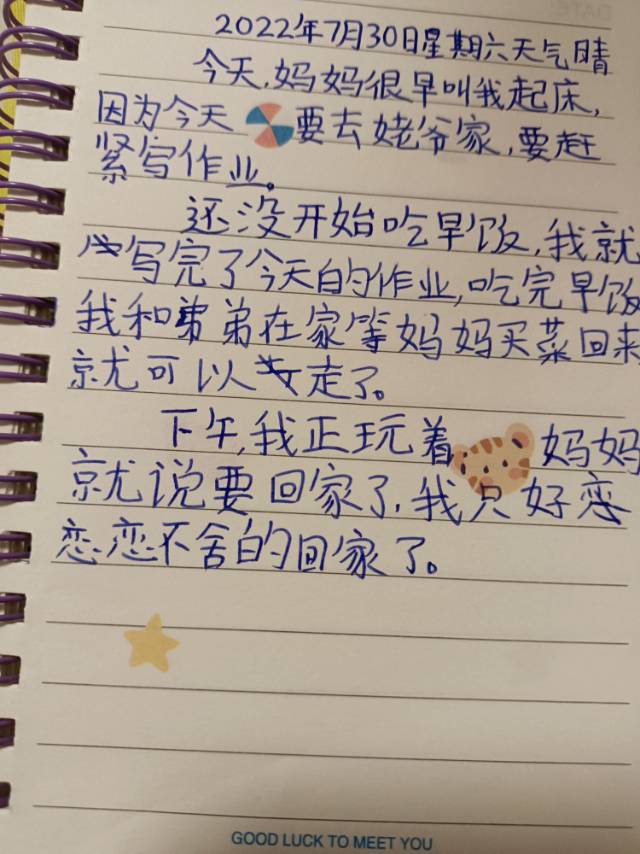 DATE:
2022年7月30日星期六天气晴
今天,妈妈很早叫我起床,
因为今天要去姥爷家,要赶
紧写作业。
还没开始吃早饭,我就
写完了今天的作业,吃完早饭
我和弟弟在家等妈妈买菜回来
就可以走了。
下午,我正玩着妈妈
就说要回家了,我只好恋
恋恋不舍的回家了。
GOOD LUCK TO MEET YOU